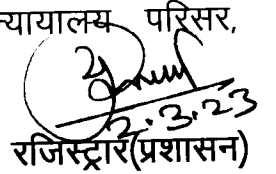 न्यायालय परिसर,
2.3.23
रजिस्ट्रार(प्रशासन)